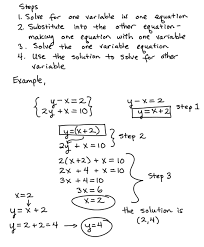 Steps
1. Solve for one variable in one equation
2. Substitute into the other equation -
making one equation with one variable
3. Solve the one variable equation.
4. Use the solution to solve for other
variable.
Example,
{ y - x = 2 }
{ 2y + x = 10 }
y - x = 2
y = x + 2
Step 1
y = (x + 2)
2y + x = 10
Step 2
2(x + 2) + x = 10
2x + 4 + x = 10
3x + 4 = 10
3x = 6
x = 2
Step 3
x = 2
y = x + 2
y = 2 + 2 = 4 → y = 4
the solution is
(2,4)